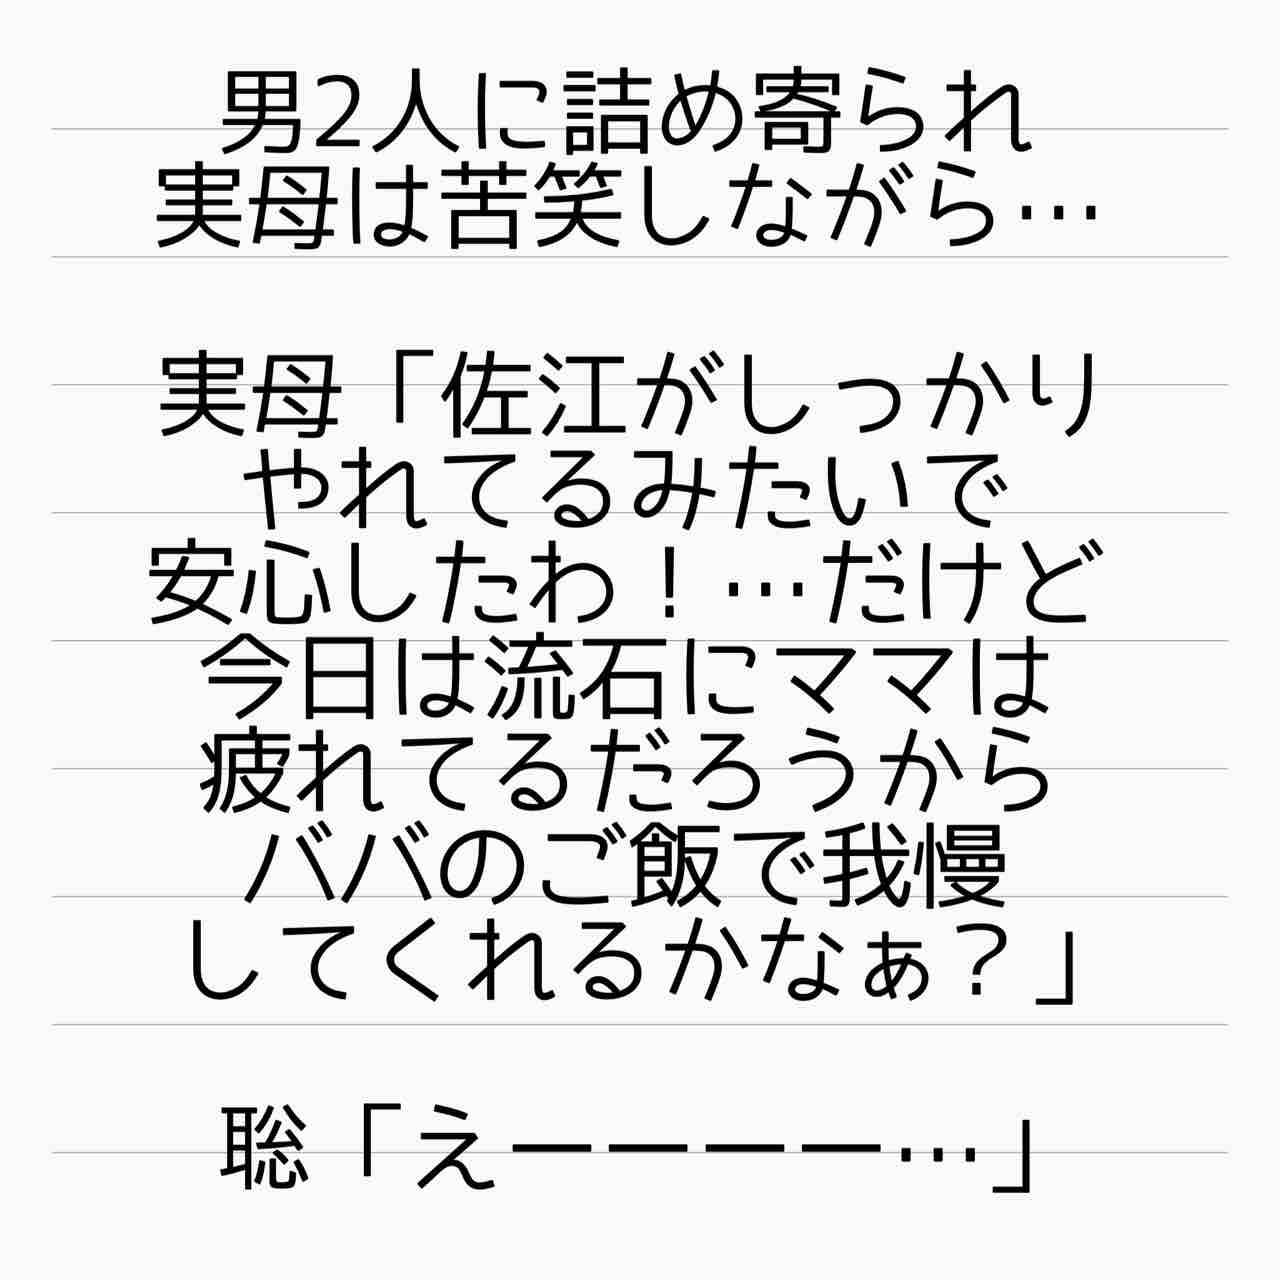 男2人に詰め寄られ
実母は苦笑しながら…
実母「佐江がしっかり
やれてるみたいで
安心したわ！…だけど
今日は流石にママは
疲れてるだろうから
ババのご飯で我慢
してくれるかなぁ？」
聡「えーーーー…」